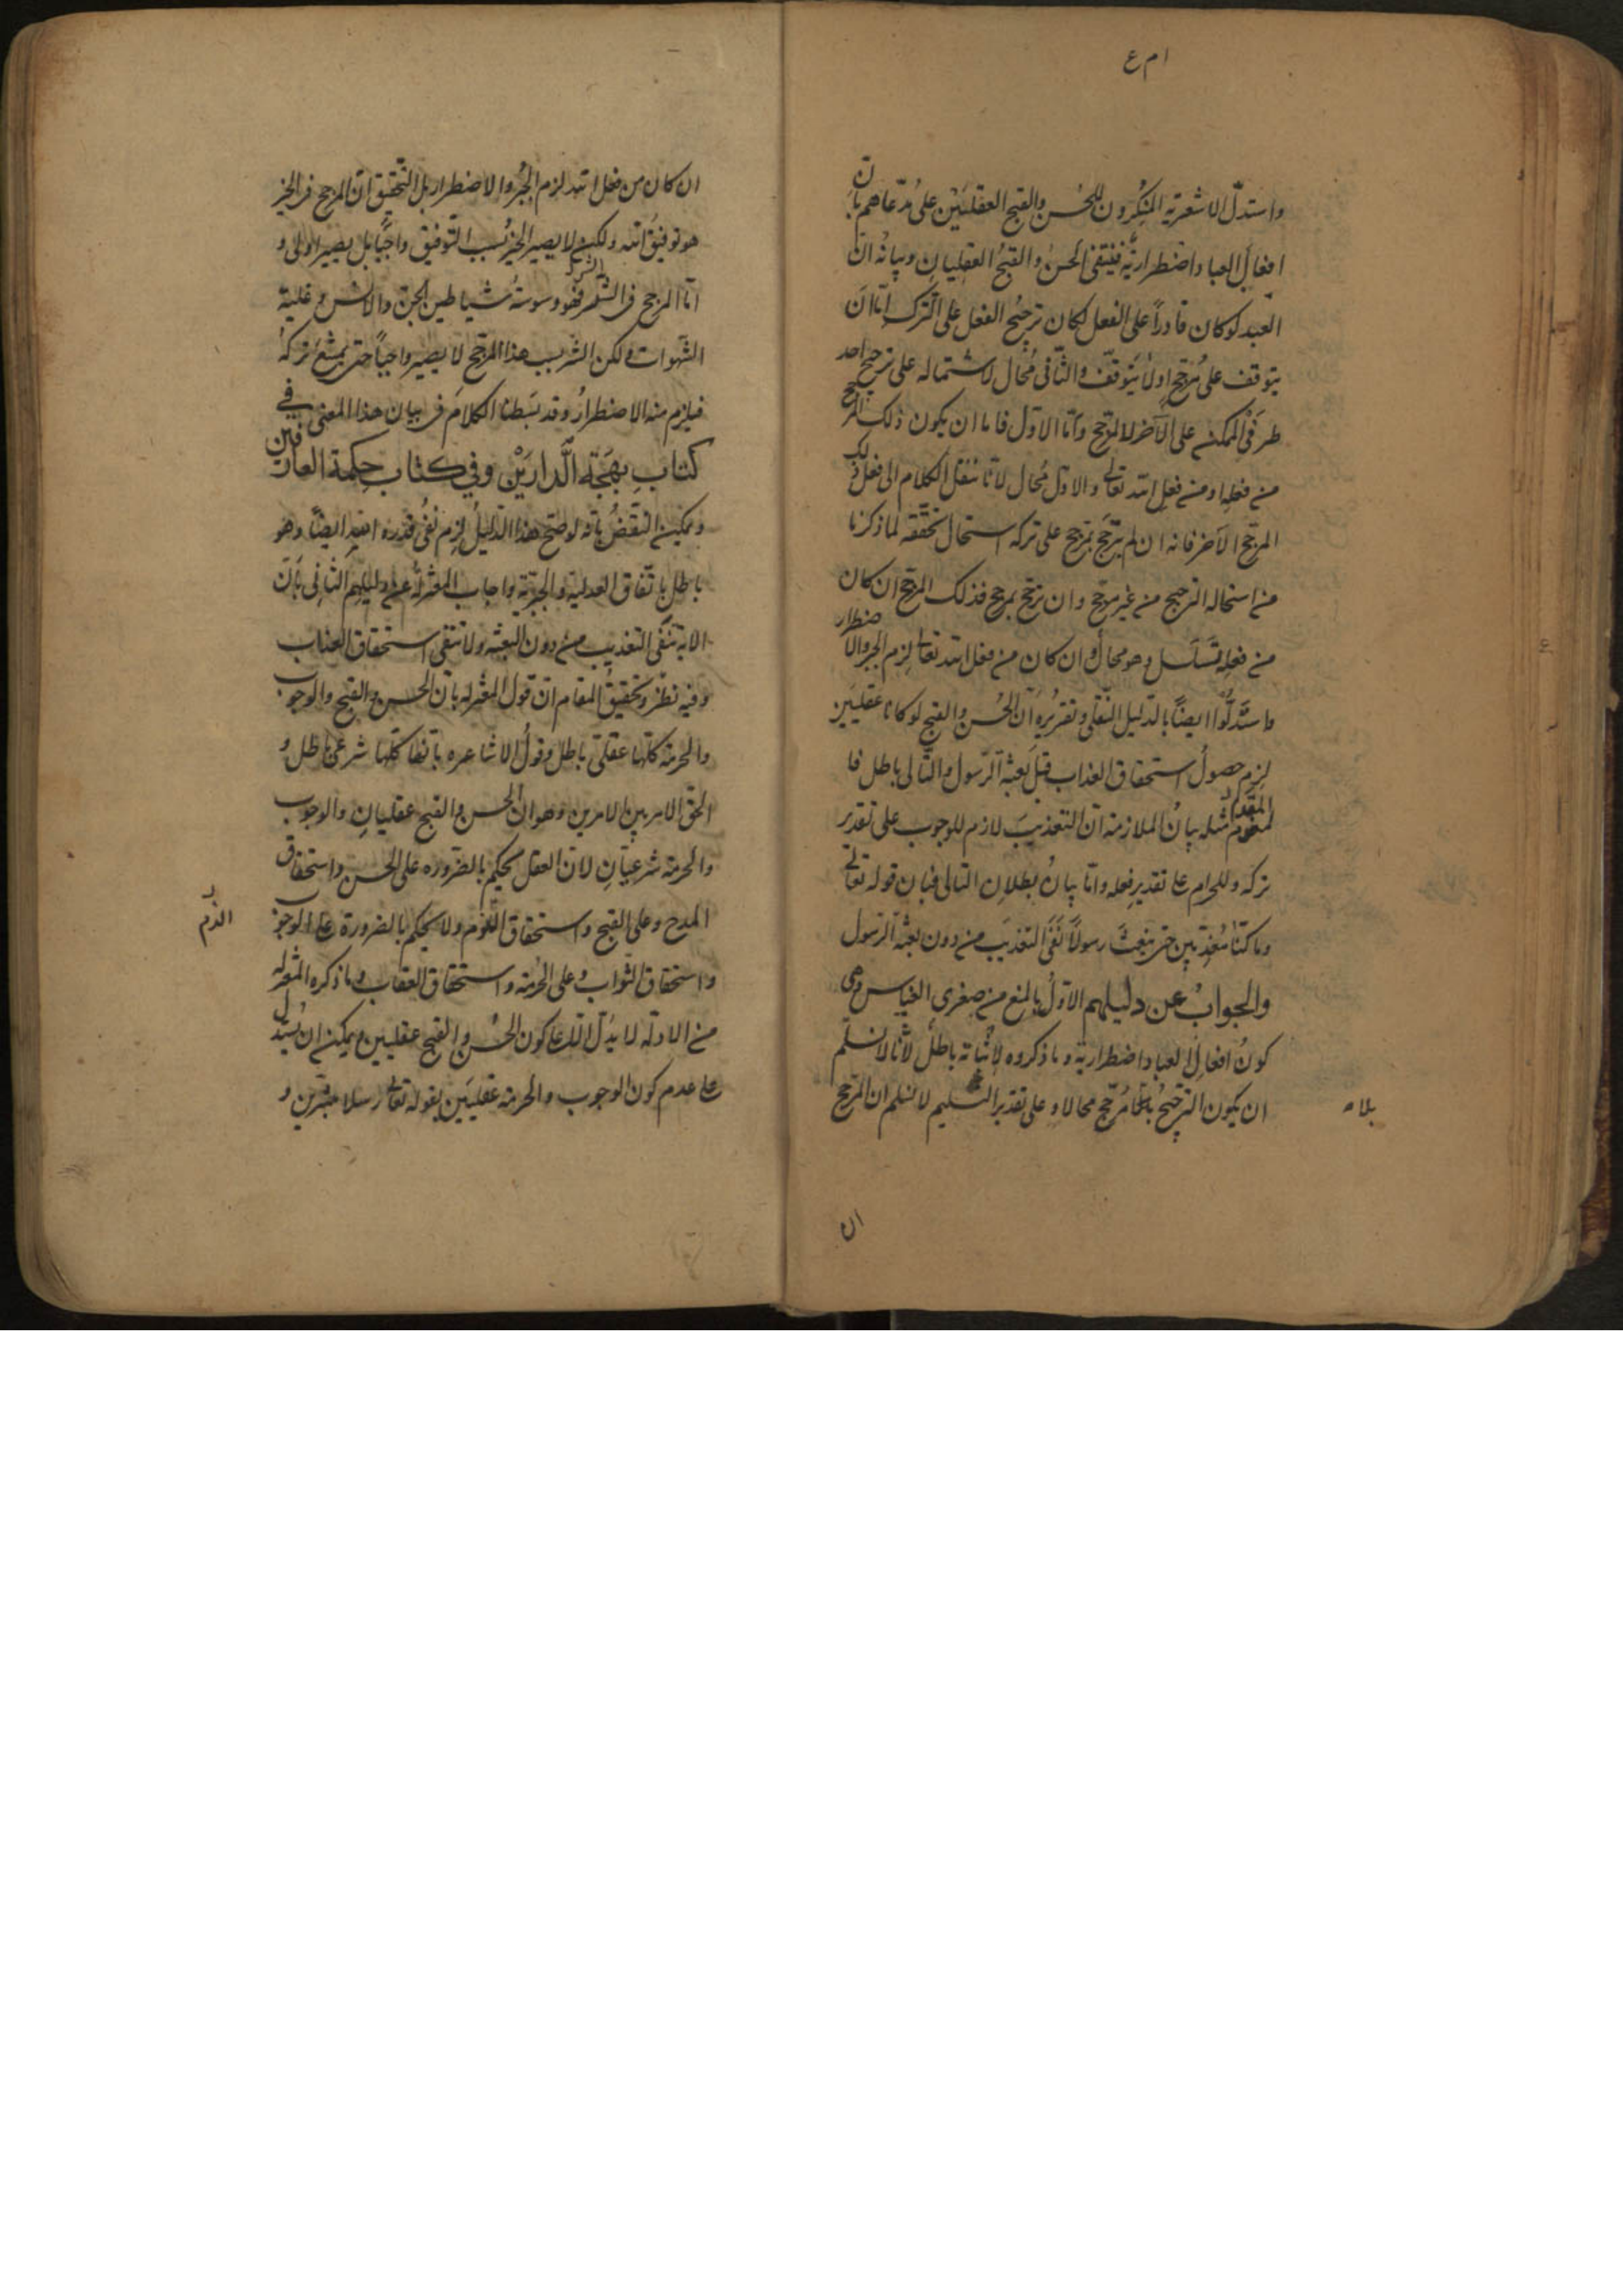 ام ع
واستدلّ الاشعريه المنكرون للحسن والقبح العقليين على مدّعاهم بانّ
افعال العباد اضطراريّه فينتفى الحسن والقبح العقليان وبيانه انّ
العبد لو كان قادراً على الفعل لكان ترجيح الفعل على الترك امّا ان
يتوقف على مرجّح او لا يتوقّف والثانى محال لاشتماله على ترجيح احد
طرفى الممكن على الآخر لا لمرجّح وامّا الاوّل فاما ان يكون ذلك المرجح
من فعله او من فعل الله تعالى والاوّل محال لانّا ننقل الكلام الى فعل ذلك
المرجح الآخر فانه ان لم يترجّح بمرجح على تركه استحال تحقّقه لما ذكرنا
من استحاله الترجيح من غير مرجّح وان ترجّح بمرجح فذلك المرجّح ان كان
من فعله تسلسل وهو محال وان كان من فعل الله تعالى لزم الجبر والاضطرار
واستدلّوا ايضاً بالدليل النقلى وتقريره انّ الحسن والقبح لو كانا عقليين
لزم حصول استحقاق العذاب قبل بعثة الرّسول والتّالى باطل فا
لمقدّم مثله بيان الملازمة انّ التعذيب لازم للوجوب على تقدير
تركه وللحرام على تقدير فعله وامّا بيان بطلان التالى فبان قوله تعالى
وما كنّا معذّبين حتى نبعث رسولاً نفى التعذيب من دون بعثة الرّسول
والجواب عن دليلهم الاوّل بالمنع من صغرى القياس وهى
كون افعال العباد اضطرارية وما ذكروه لاثباته باطل لانّا لا نسلّم
ان يكون الترجيح بلا مرجّح محالا وعلى تقدير التسليم لا نسلم ان المرجّح
بلاه
ان
ان كان من فعل الله لزم الجبر والاضطرار بل التحقيق انّ المرجح فى الخير
هو توفيق الله ولكن لا يصير الخير بسبب التوفيق واجباً بل يصير اولى و
امّا المرجح فى الشر فهو وسوسة شياطين الجن والانس وغلبة
الشهوات ولكن الشر بسبب هذا المرجّح لا يصير واجباً حتى يمتنع تركه
فيلزم منه الاضطرار وقد بسطنا الكلام فى بيان هذا المعنى فى
كتاب بهجة الدارين وفي كتاب حكمة العارفين
ويمكن النقض بانّه لو صحّ هذا الدليل لزم نفى قدرة الله ايضاً وهو
باطل باتّفاق العدلية والجبريّة واجاب المعتزلة عن دليلهم الثانى بانّ
الاية تنفى التعذيب من دون البعثه ولا تنفى استحقاق العذاب
وفيه نظر وتحقيق المقام انّ قول المعتزله بانّ الحسن والقبح والوجوب
والحرمة كلّها عقلىّ باطل وقول الاشاعره بانّها كلّها شرعىّ باطل و
الحق الامر بين الامرين وهو انّ الحسن والقبح عقليان والوجوب
والحرمة شرعيّان لانّ العقل يحكم بالضّروره على الحسن واستحقاق
المدح وعلى القبح واستحقاق اللوم ولا يحكم بالضرورة على الوجوب
الذم
واستحقاق الثواب وعلى الحرمة واستحقاق العقاب وما ذكره المعتزله
من الادلّه لا يدلّ الّا على كون الحسن والقبح عقليين ويمكن ان يستدلّ
على عدم كون الوجوب والحرمة عقليين بقوله تعالى رسلا مبشّرين و